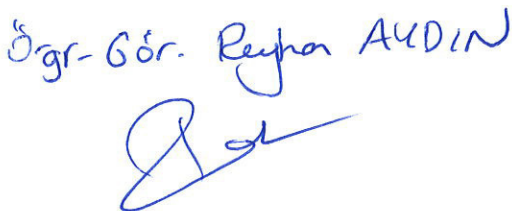 Öğr. Gör. Reyhan AYDIN